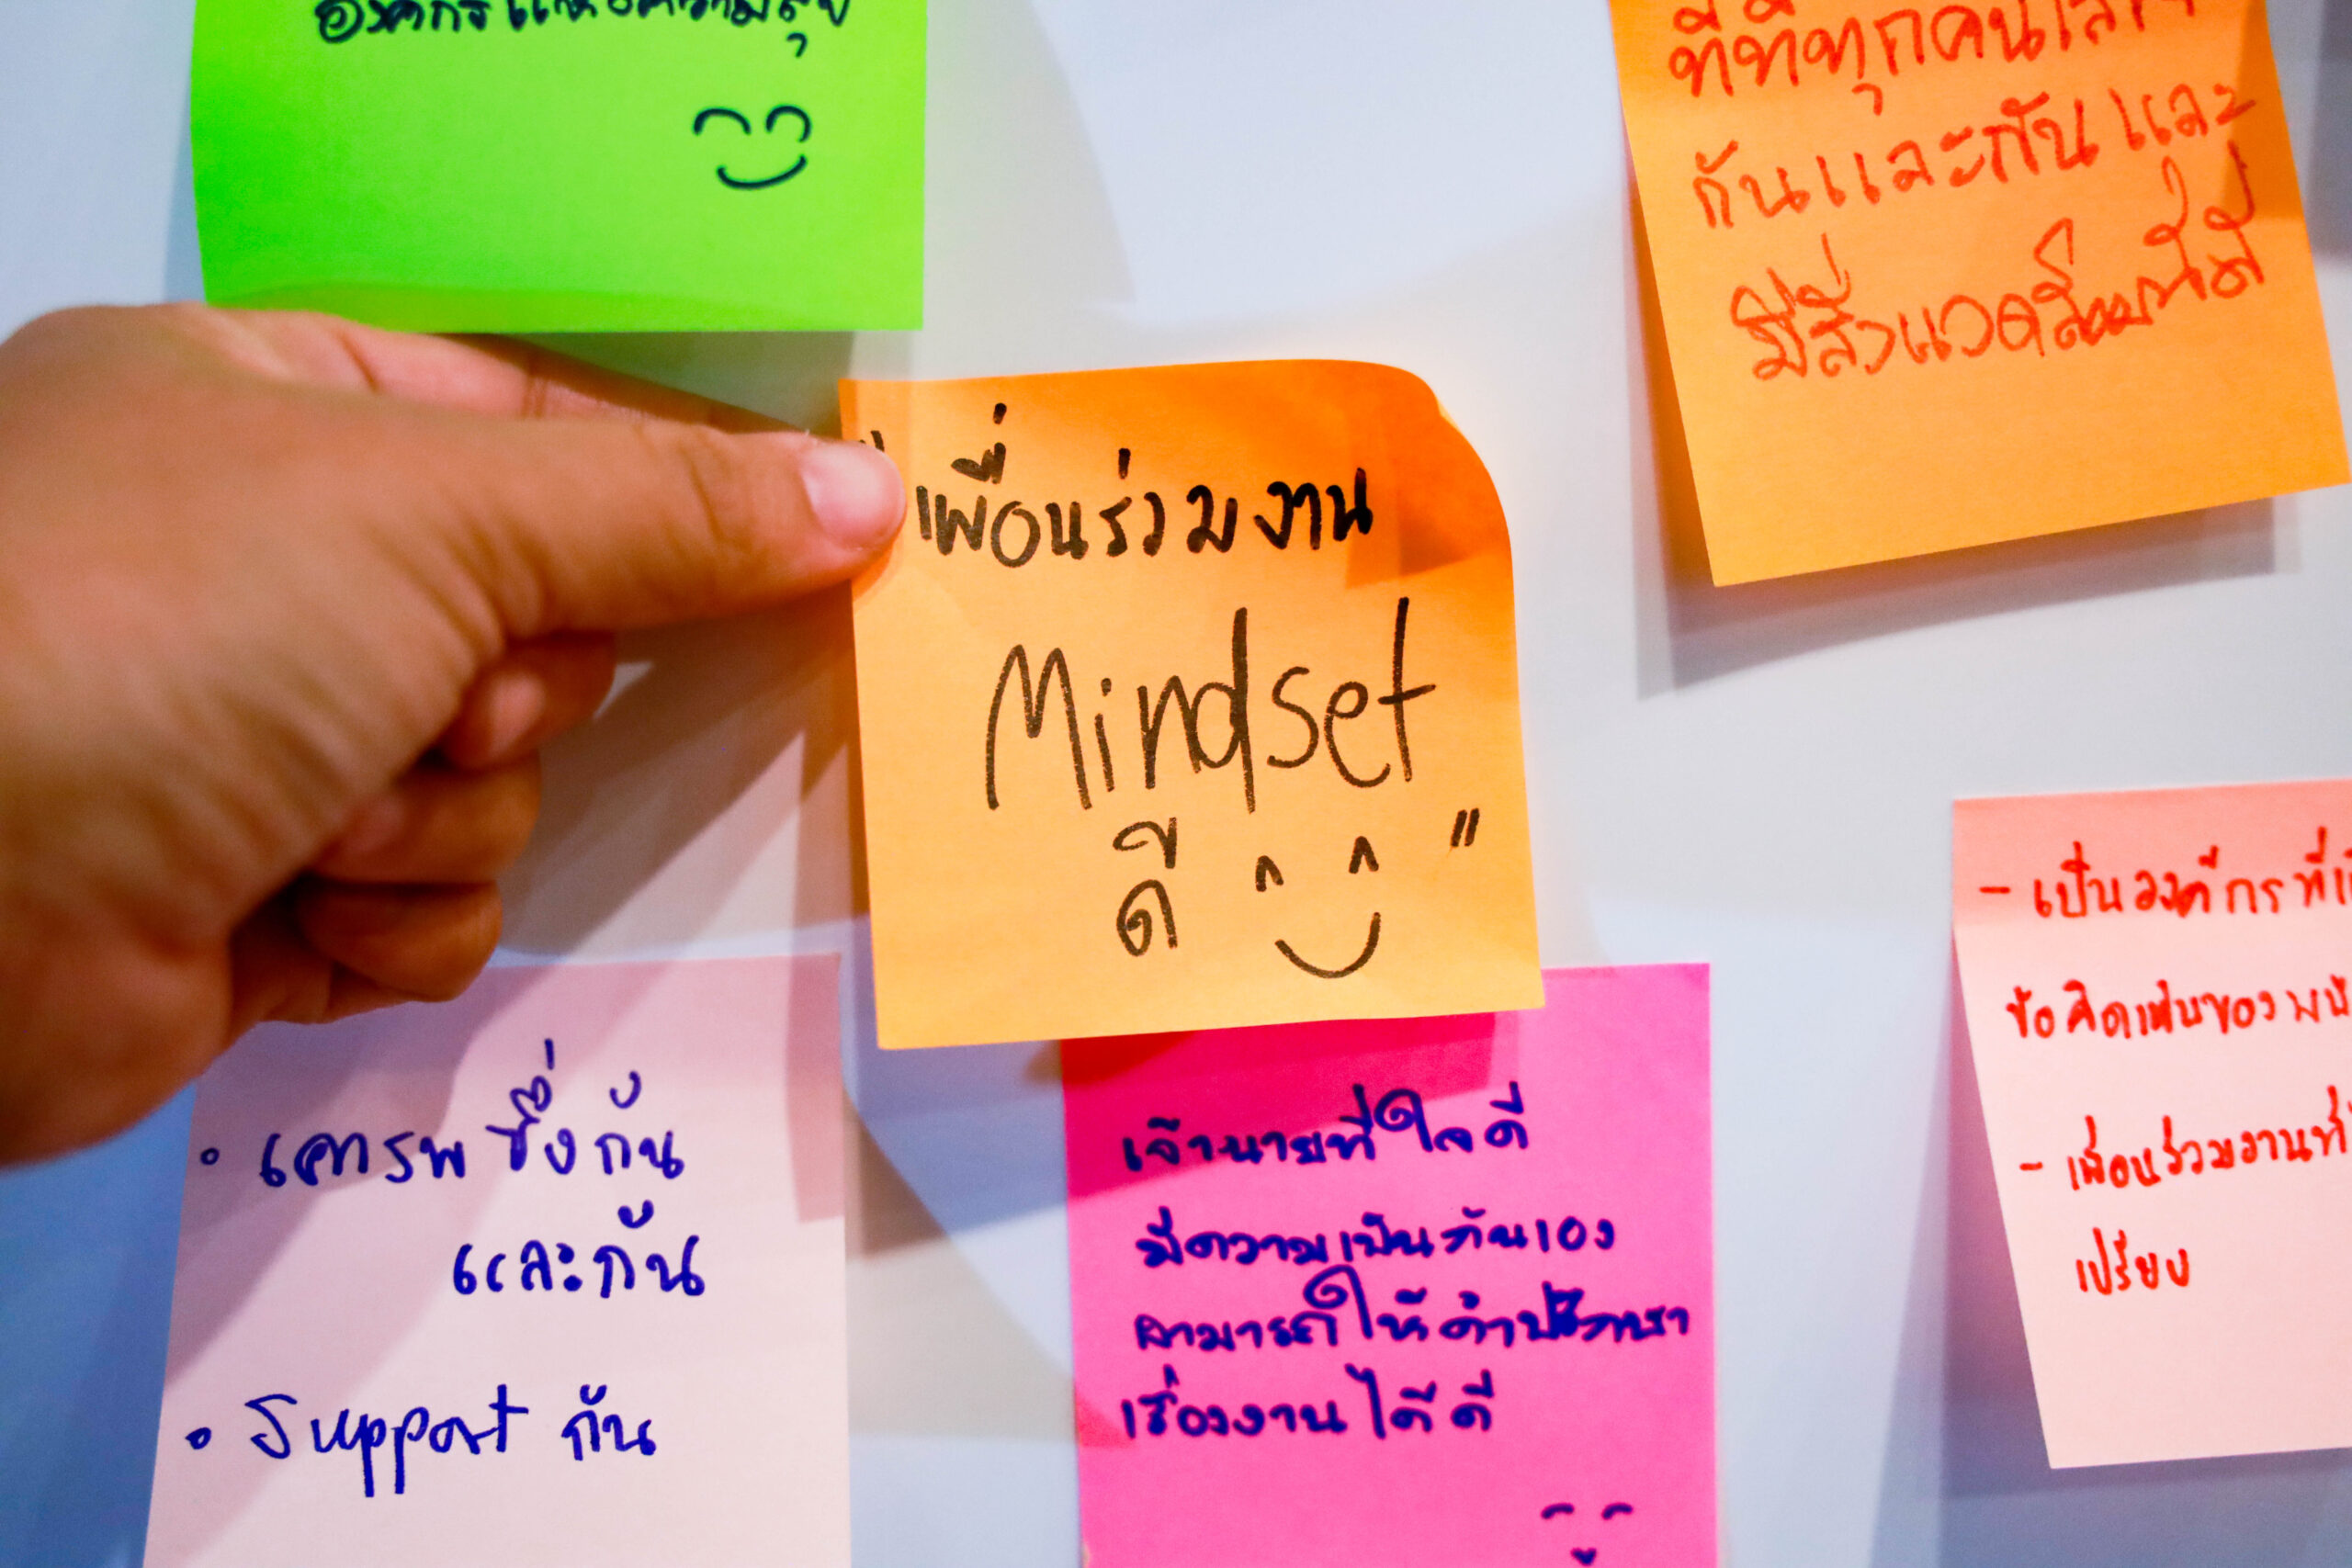 องค์กรแห่งความสุข
ที่ที่ทุกคน
กันและกัน และ
มีสิ่งแวดล้อมที่ดี
"เพื่อนร่วมงาน
Mindset
ดี "
• เคารพซึ่งกัน
และกัน
• Support กัน
เจ้านายที่ใจดี
มีความเป็นกันเอง
สามารถให้คำปรึกษา
เรื่องงานได้ดี
- เป็นองค์กรที่
ข้อคิดเห็นของ
- เพื่อนร่วมงานที่
เปรียบ